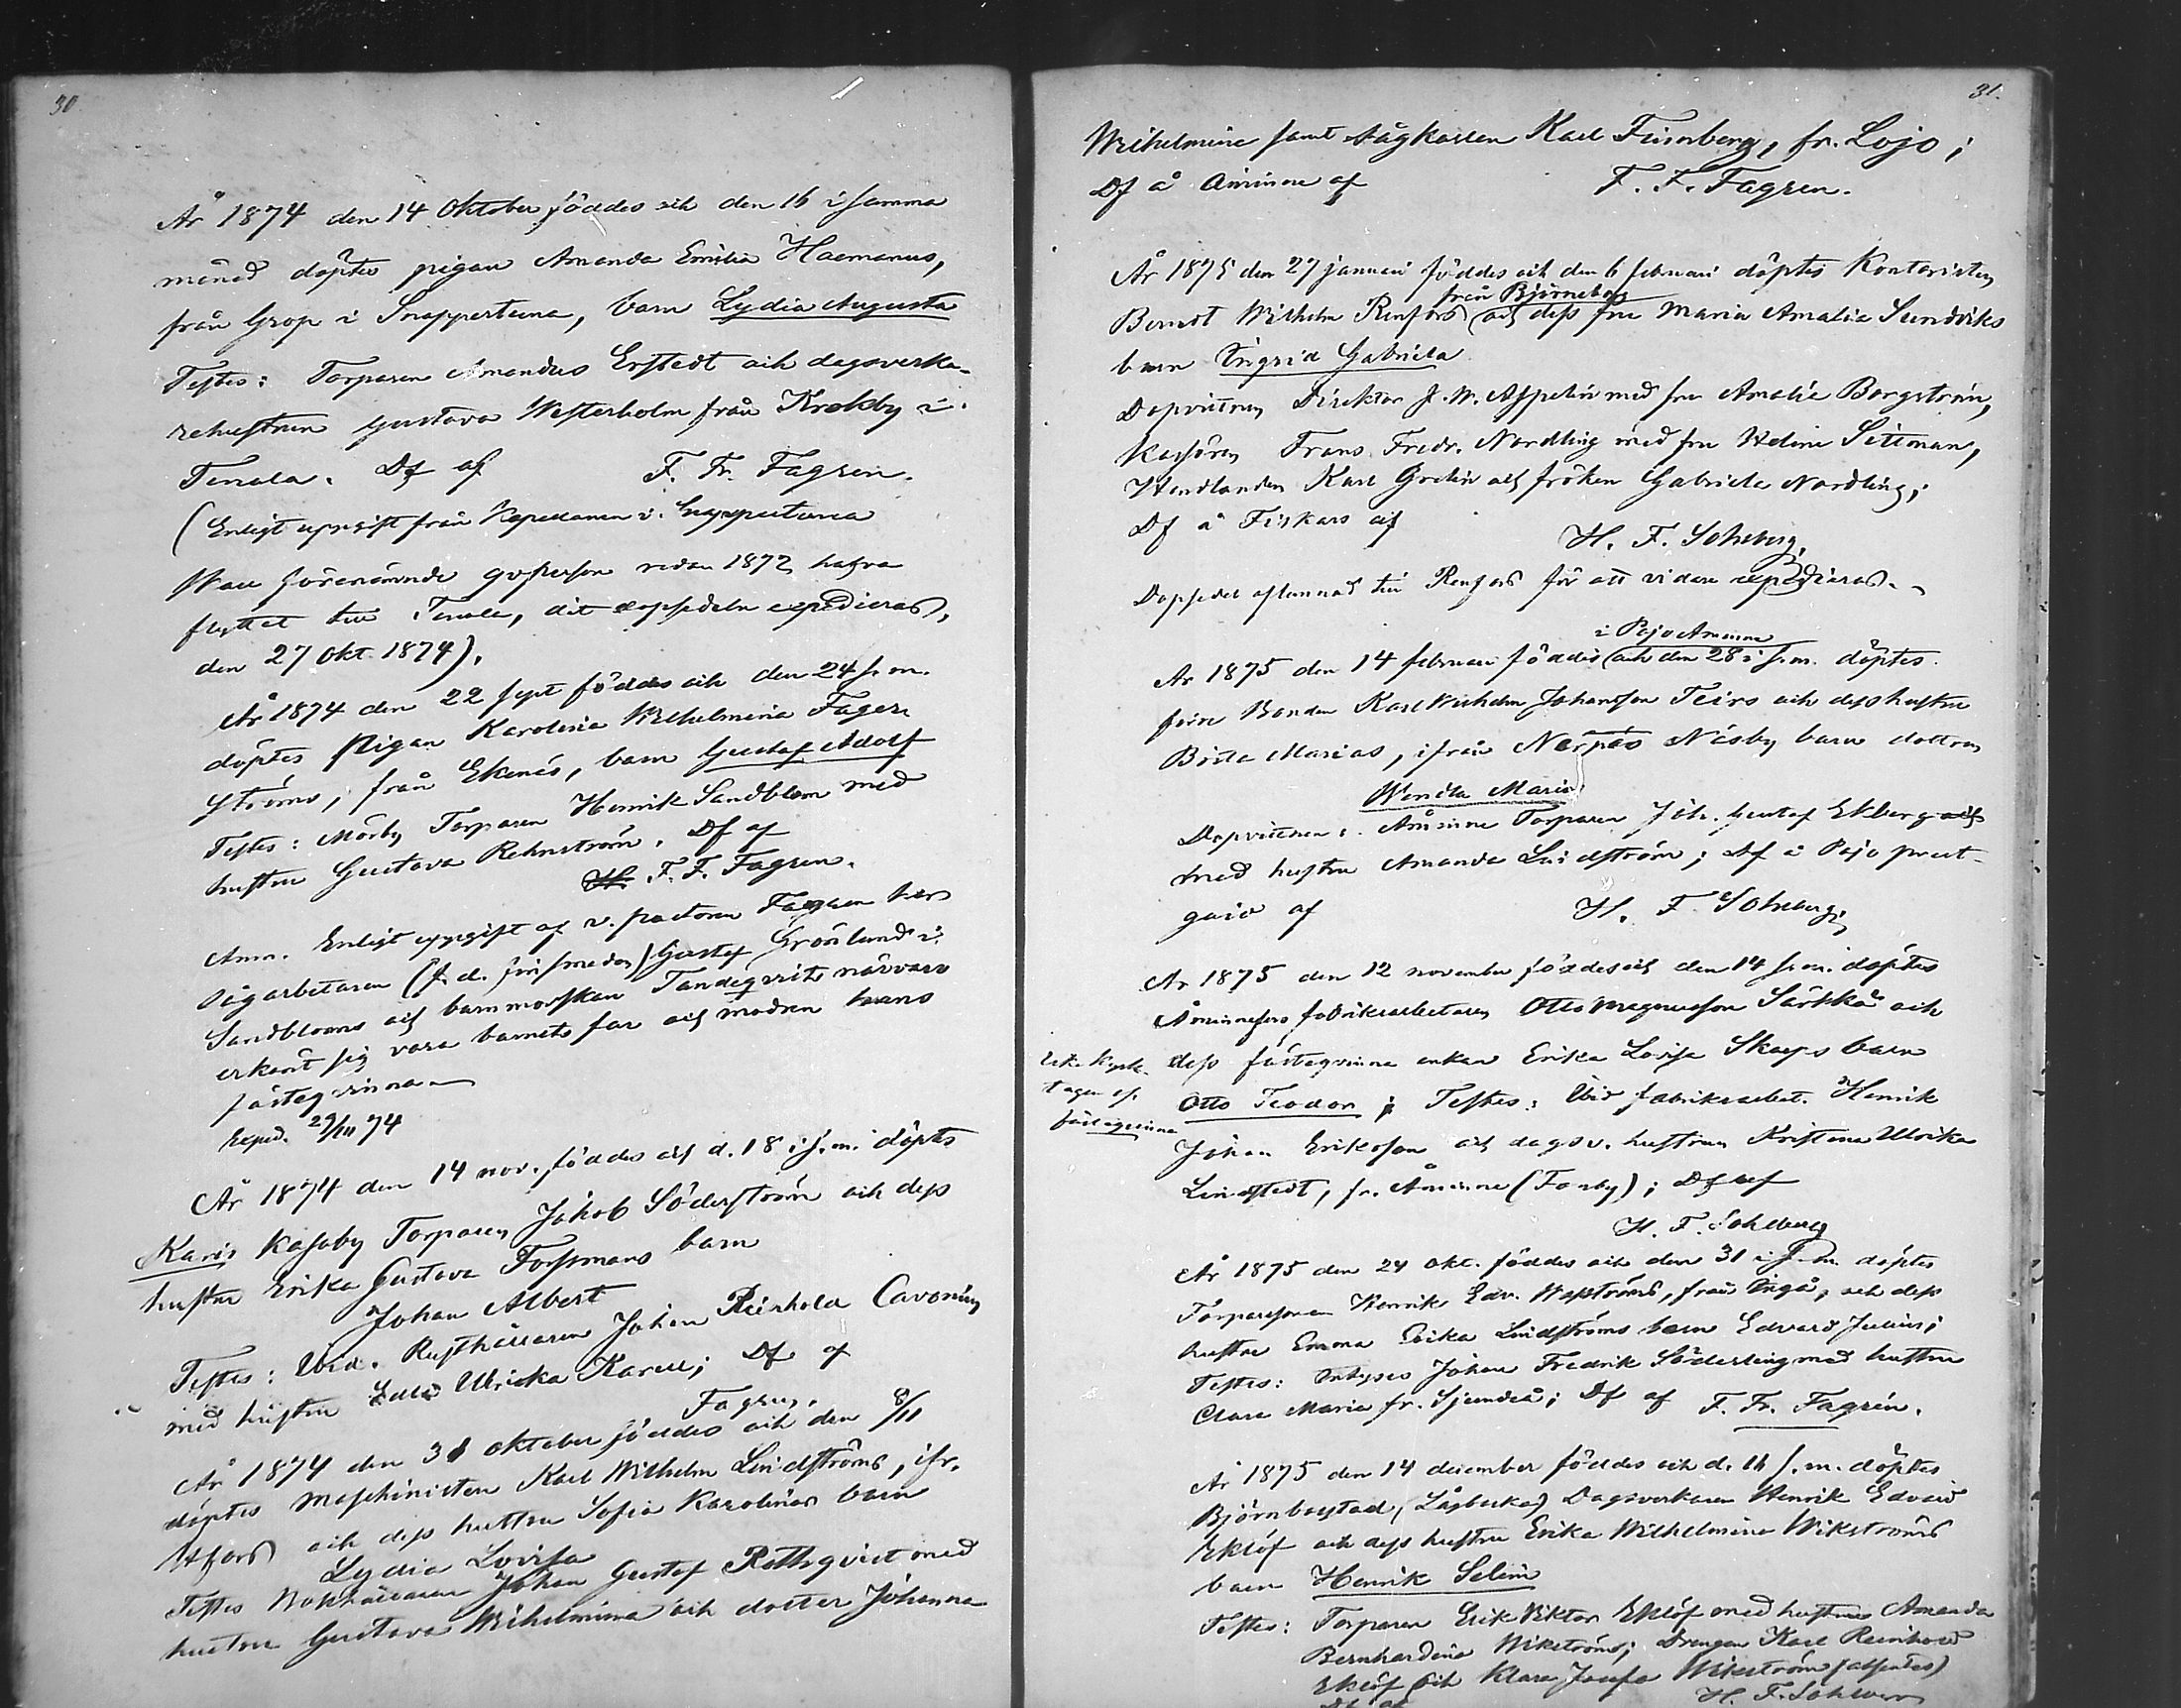 30
År 1874 den 14 Oktober föddes och den 16 i samma
månad döptes pigan Amanda Emilia
från Grop i Snappertuna, barn Lydia Augusta
Testes: Torparen Amandus Erstedt och dagsverka-
rehustrun Gustava Westerholm från Krokby i
Tenala. Df af F. Fr. Fagrén.
(Enligt uppgift från Kapellanen i Snappertuna
skall förenämnde qvsperson redan 1872 hafva
flyttat till Tenala, dit dopsedeln expedieras,
den 27 Okt. 1874).
År 1874 den 22 sept föddes och den 24 s. m.
döptes Pigan Karolina Wilhelmina Fager-
ströms, från Ekenäs, barn Gustaf Adolf
Testes: Mörby Torparen Henrik Sandblom med
hustru Gustava Rehnström. Df af
F. F. Fagrén.
Anm. Enligt uppgift af v. pastorn Fagrén har
sågarbetaren (f. d. Gustaf Grönlund i
Sandbloms och barnmorskan Tandeqvists närvaro
erkänt sig vara barnets far och modren hans
fästeqvinna
Exped. 29/III 74
År 1874 den 14 nov. föddes och d. 18 i s. m. döptes
Karis Kasaby Torparen Jakob Söderström och dess
hustru Erika Gustava Forssmans barn
Johan Albert
Testes: Ibid. Rusthållaren Johan Reinhold Cavonius
med hustru Edla Ulricka Karell; Df af
Fagrén.
År 1874 den 31 oktober föddes och den 8/11
döptes Maschinisten Karl Wilhelm Lindströms, ifr.
och dess hustru Sofia Karolinas barn
Lydia Lovisa
Testes Bokhållaren Johan Gustaf Rothqvist med
hustru Gustava Wilhelmina och dotter Johanna
31.
Wilhelmina samt Sågkarlen Karl Finnberg, fr. Lojo;
Df å Åminne af F. F. Fagrén.
År 1875 den 27 januari föddes och den 6 februari döptes Kontoristen
från Björneborg
Berndt Wilhelm Renfors och dess fru Maria Amalia Sundviks
barn Ingrid Gabriela
Dopvittnen Direktor J. W. Appelin med fru Amalie Borgström,
Kassören Frans Fredr. Nordling med fru Helena Sittman,
Handlanden Karl Grelin och fröken Gabriele Nordling;
Df å Fiskars af
H. F. Sohlberg.
Dopsedel aflemnad till Renfors för att vidare expedieras.
i Pojo Åminne
År 1875 den 14 februari föddes och den 28 i s. m. döptes
förre Bonden Karl Wilhelm Johansson Teirs och dess hustru
Brita Marias, ifrån Nerpes Näsby barn dottren
Wendla Maria
Dopvittnen i Åminne Torparen Joh. Gustaf Ekberg
med hustru Amanda Lindström; Df å Pojo prest-
gård af H. F. Sohlberg.
År 1875 den 12 november föddes och den 14 s. m. döptes
Åminnefors fabriksarbetaren Otto Magnusson Särkkä och
dess fästeqvinna enkan Erika Lovisa Skogs barn
Icke kyrk-
tagen
fästeqvinna
Otto Teodor; Testes: Ibid fabriksarbet. Henrik
Johan Eriksson och dagsv. hustrun Kristina Ulrika
Lindstedt, fr. Åminne (Forsby); Df af
H. F. Sohlberg
År 1875 den 24 okt. föddes och den 31 i s. m. döptes
Torparsonen Henrik Edv. Wasströms, från Ingå, och dess
hustru Emma Erika Lindströms barn Edvard Julius;
Testes: Johan Fredrik Söderling med hustru
Clara Maria fr. Sjundeå; Df af F. Fr. Fagrén.
År 1875 den 14 december föddes och d. 16 s. m. döptes
Björnbolstad, Dagsverkaren Henrik Edvard
Eklöf och dess hustru Erika Wilhelmina Wikströms
barn Henrik Selim
Testes: Torparen Erik Viktor Eklöf med hustru Amanda
Bernhardina Wikström; Drengen Karl Reinhold
Eklöf och Klara Josefa Wikström (absentes)
Df af H. F. Sohlberg